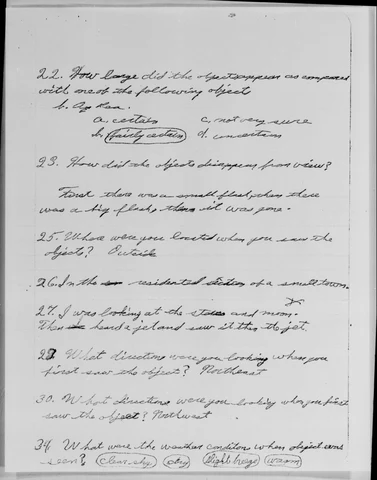 22. How large did the object appear as compared
with one of the following object
b.
a. certain c. not very sure
b. fairly certain d. uncertain
23. How did the objects disappear from view?
First there was a small flash, then there
was a big flash, then it was gone.
25. Where were you located when you saw the
objects? Outside
26. In the residented of a small town.
27. I was looking at the stars and moon.
Then heard a jet and saw it this the jet.
What directions were you looking when you
first saw the object? Northeast
30. What directions were you looking when you first
saw the object? Northwest
34 What were the weather conditons when object was
seen? clear sky dry slight breeze warm